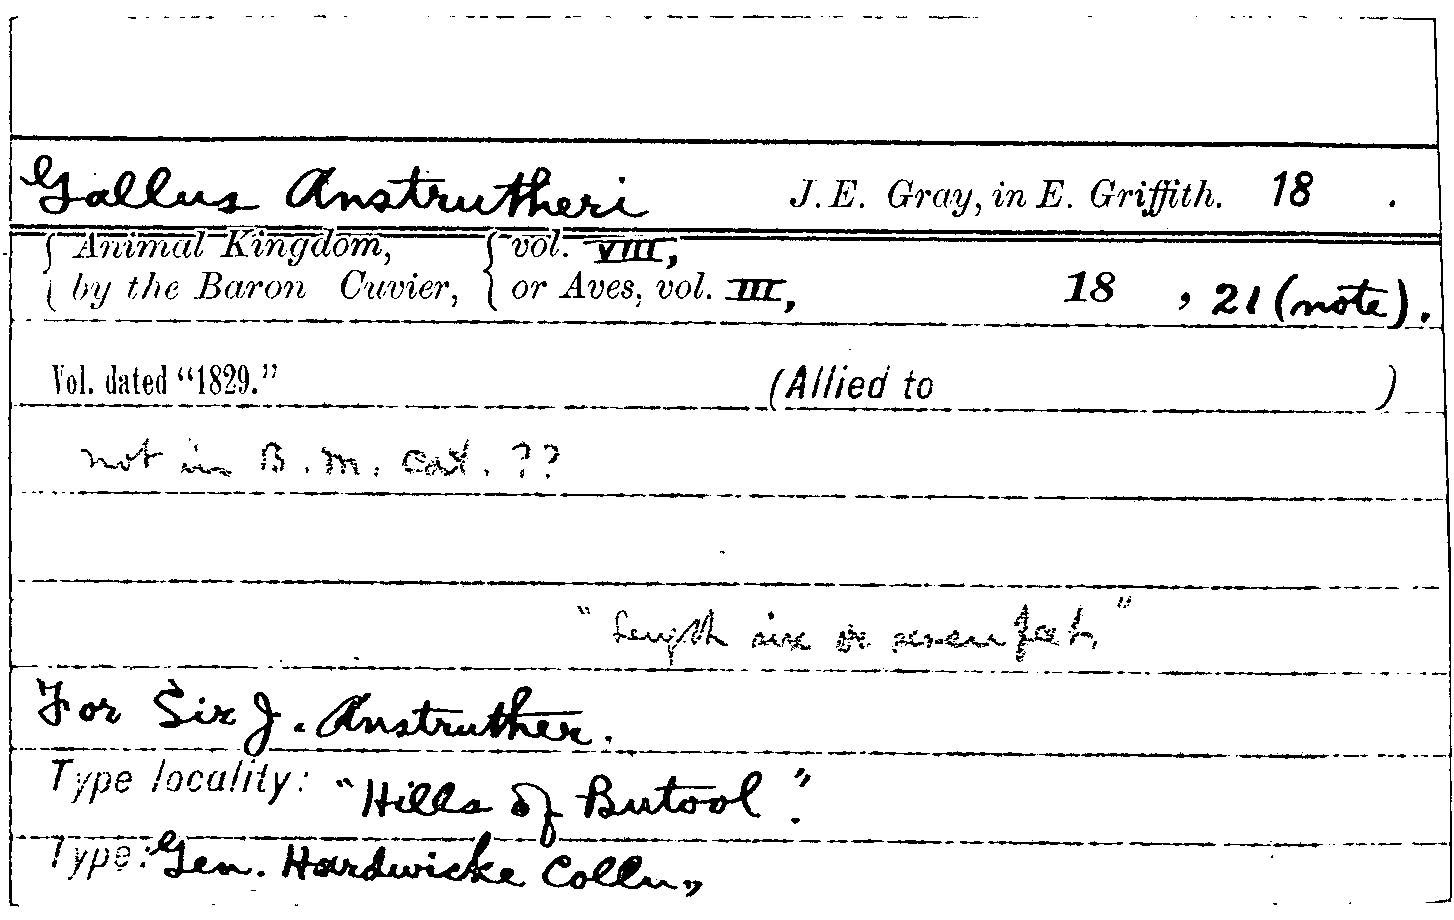 Gallus Anstrutheri J. E. Gray, in E. Griffith. 18 .
{ Animal Kingdom, { vol. VIII,
by the Baron Cuvier, or Aves, vol. III, 18 , 21 (note).
Vol. dated “1829.” (Allied to )
not in B. M. Cat. ??
"Length six or seven feet"
For Sir J. Anstruther.
Type locality: "Hills of Butool".
Type: Gen. Hardwicke Colln,,